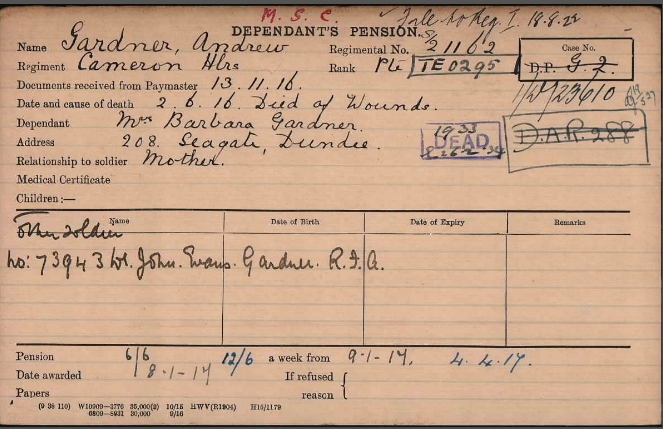 M. S. C. File to Reg. I. 18.8.22
DEPENDANT'S PENSION.
Name Gardner, Andrew Regimental No. S/21162
Regiment Cameron Hlrs Rank Pte TE0295
Case No.
D.P. G.7.
Documents received from Paymaster 13.11.16. 1/D/23610
Date and cause of death 2.6.16. Died of Wounds.
Dependant Mrs Barbara Gardner.
Address 208. Seagate, Dundee. 1933 DEAD D.A.R. 288
Relationship to soldier Mother.
Medical Certificate
Children:—
Name Date of Birth Date of Expiry Remarks
Other soldier
No: 73943 Dr. John. Evans. Gardner. R.F.A.
Pension 6/6 12/6 a week from 9-1-17. 4.4.17.
Date awarded 8-1-17 If refused
Papers reason
(9 36 110) W10909—3776 35,000(2) 10/15 HWV(R1904) H16/1179
6809—8931 30,000 9/16